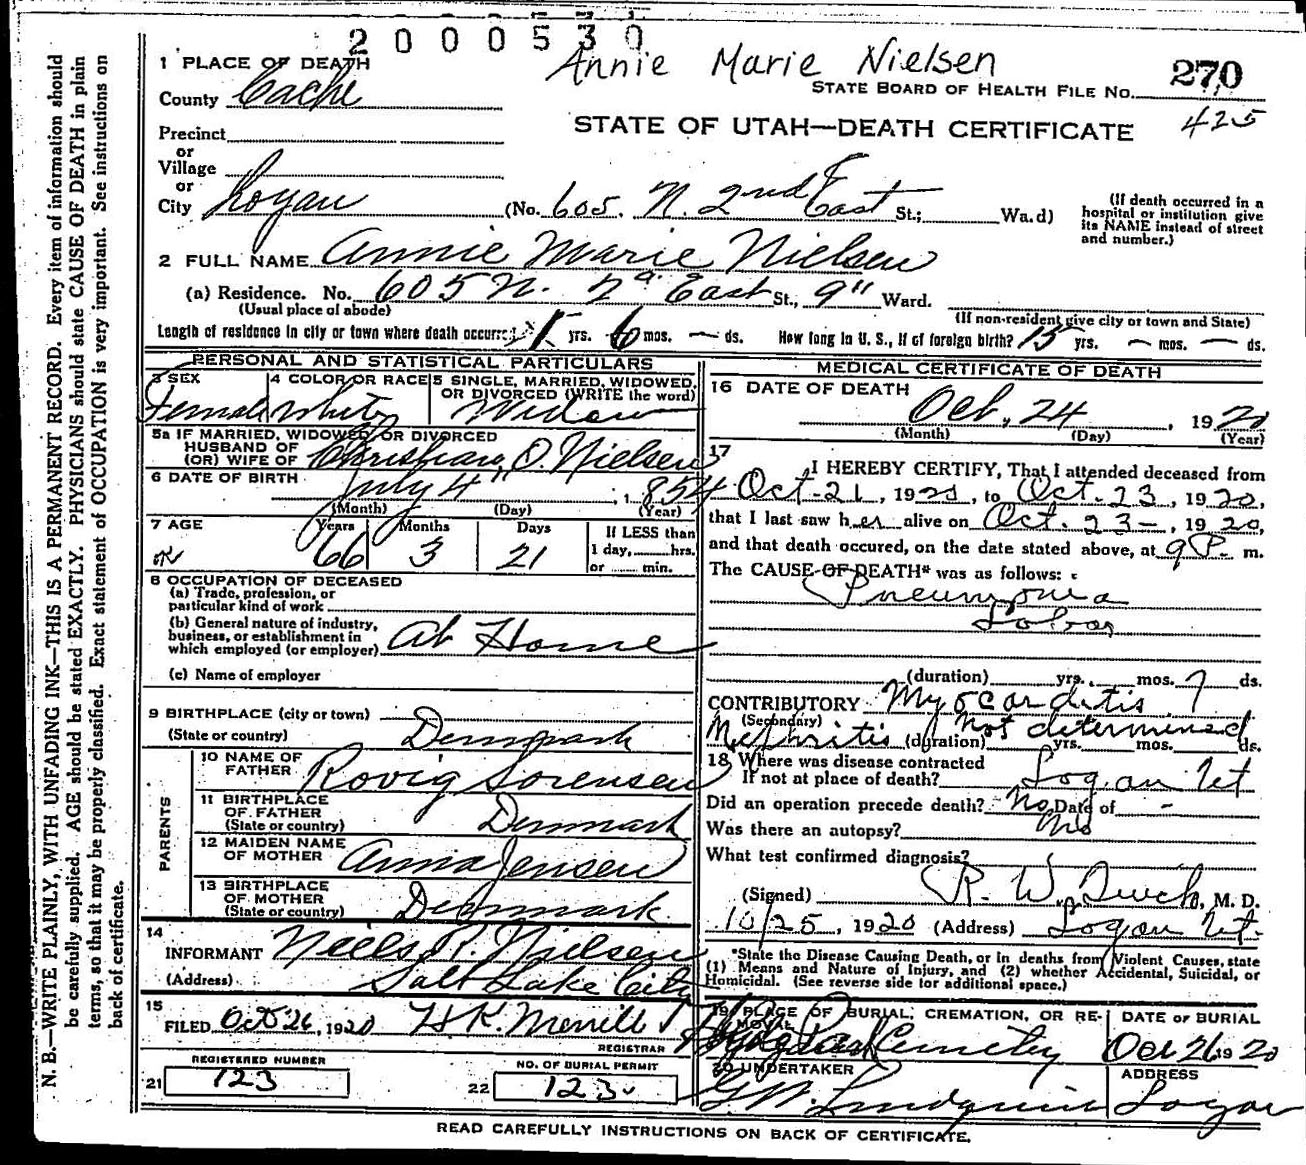 2000530
Annie Marie Nielsen
270
STATE BOARD OF HEALTH FILE NO.
425
STATE OF UTAH—DEATH CERTIFICATE
1 PLACE OF DEATH
County Cache
Precinct
or
Village
or
City Logan (No. 605. N. 2nd East St.; Wa.d)
(If death occurred in a hospital or institution give its NAME instead of street and number.)
2 FULL NAME Annie Marie Nielsen
(a) Residence. No. 605 N. 2d East St., 9" Ward.
(Usual place of abode)
(If non-resident give city or town and State)
Length of residence in city or town where death occurred 1 yrs. 6 mos. — ds. How long in U. S., if of foreign birth? 15 yrs. — mos. — ds.
PERSONAL AND STATISTICAL PARTICULARS
3 SEX Female
4 COLOR OR RACE White
5 SINGLE, MARRIED, WIDOWED, OR DIVORCED (WRITE the word) Widow
5a IF MARRIED, WIDOWED OR DIVORCED
HUSBAND OF
(OR) WIFE OF Christian O. Nielsen
6 DATE OF BIRTH July 4" , 1854
(Month) (Day) (Year)
7 AGE Years Months Days
66 3 21
If LESS than
1 day, hrs.
or min.
8 OCCUPATION OF DECEASED
(a) Trade, profession, or
particular kind of work
(b) General nature of industry,
business, or establishment in
which employed (or employer) At Home
(c) Name of employer
9 BIRTHPLACE (city or town)
(State or country) Denmark
PARENTS
10 NAME OF FATHER Rovig Sorensen
11 BIRTHPLACE OF FATHER (State or country) Denmark
12 MAIDEN NAME OF MOTHER Anna Jensen
13 BIRTHPLACE OF MOTHER (State or country) Denmark
14
INFORMANT Neils P. Nielsen
(Address) Salt Lake City
15
FILED Oct 26, 1920 H K. Merrill
REGISTRAR
REGISTERED NUMBER
21 123
NO. OF BURIAL PERMIT
22 123
MEDICAL CERTIFICATE OF DEATH
16 DATE OF DEATH
Oct, 24 , 1920
(Month) (Day) (Year)
17
I HEREBY CERTIFY, That I attended deceased from
Oct-21, 1920, to Oct-23, 1920,
that I last saw her alive on Oct. 23-, 1920,
and that death occured, on the date stated above, at 9 P. m.
The CAUSE OF DEATH* was as follows:
Pneumonia
Lobar
(duration) yrs. mos. 7 ds.
CONTRIBUTORY Myocarditis
(Secondary)
Nephritis (duration) Not determined yrs. mos. ds.
18 Where was disease contracted
If not at place of death? Logan Ut
Did an operation precede death? No Date of -
Was there an autopsy? No
What test confirmed diagnosis?
(Signed) R. W. , M. D.
10/25, 1920 (Address) Logan Ut.
*State the Disease Causing Death, or in deaths from Violent Causes, state
(1) Means and Nature of Injury, and (2) whether Accidental, Suicidal, or
Homicidal. (See reverse side for additional space.)
19 PLACE OF BURIAL, CREMATION, OR REMOVAL
Cemetery
DATE OF BURIAL
Oct 26 1920
20 UNDERTAKER
ADDRESS
Logan
READ CAREFULLY INSTRUCTIONS ON BACK OF CERTIFICATE.
N. B.—WRITE PLAINLY, WITH UNFADING INK—THIS IS A PERMANENT RECORD. Every item of information should
be carefully supplied. AGE should be stated EXACTLY. PHYSICIANS should state CAUSE OF DEATH in plain
terms, so that it may be properly classified. Exact statement of OCCUPATION is very important. See instructions on
back of certificate.